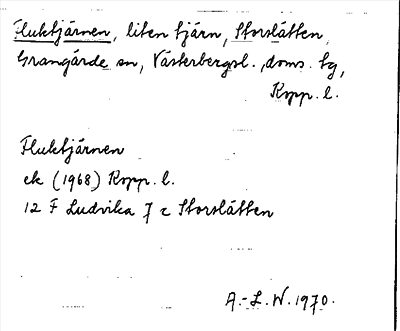 Fluktjärnen, liten tjärn, Storslätten
Grangärde sn, Västerbergsl., doms. tg,
Kopp. l.
Fluktjärnen
ek (1968) Kopp. l.
12 F Ludvika 7 c Storslätten
A.-L. W. 1970.